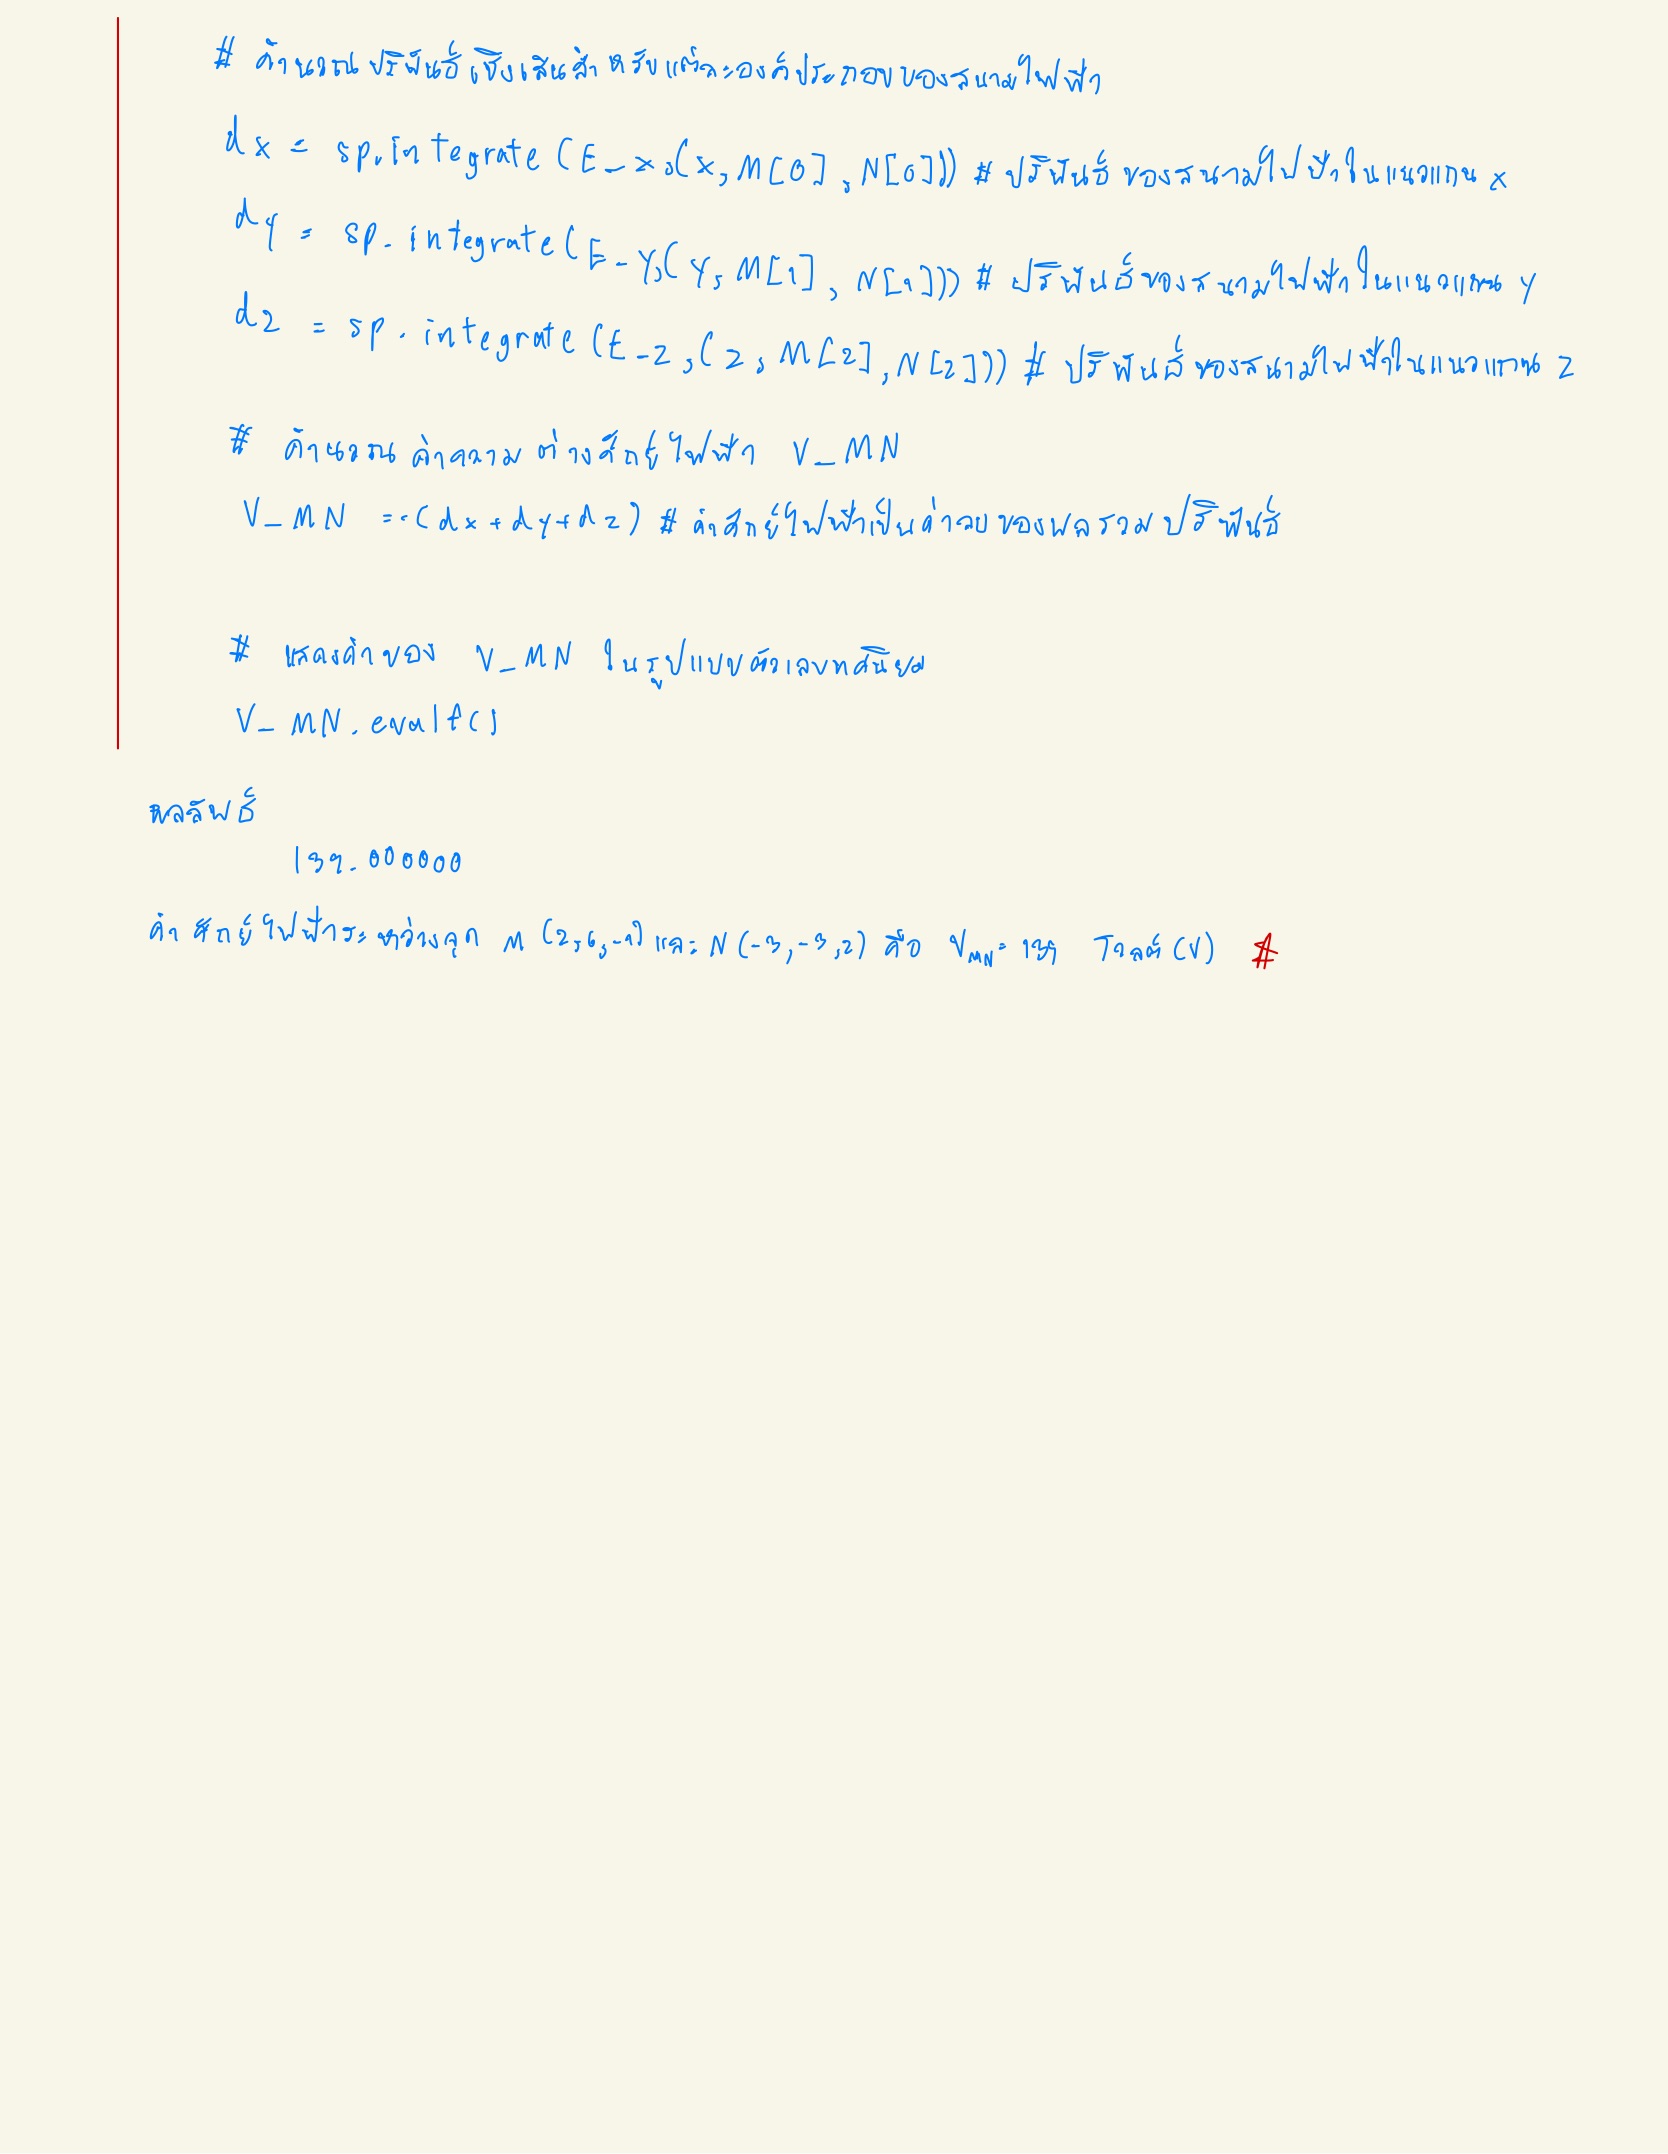 # คำนวณปริพันธ์เชิงเส้นสำหรับแต่ละองค์ประกอบของสนามไฟฟ้า
dx = sp.integrate(E_x,(x,M[0],N[0])) # ปริพันธ์ของสนามไฟฟ้าในแนวแกน x
dy = sp.integrate(E_y,(y,M[1],N[1])) # ปริพันธ์ของสนามไฟฟ้าในแนวแกน y
dz = sp.integrate(E_z,(z,M[2],N[2])) # ปริพันธ์ของสนามไฟฟ้าในแนวแกน z
# คำนวณค่าความต่างศักย์ไฟฟ้า V_MN
V_MN = -(dx+dy+dz) # ค่าศักย์ไฟฟ้าเป็นค่าลบของผลรวมปริพันธ์
# แสดงค่าของ V_MN ในรูปแบบตัวเลขทศนิยม
V_MN.evalf()
ผลลัพธ์
139.000000
ค่าศักย์ไฟฟ้าระหว่างจุด M(2,6,-1) และ N(-3,-3,2) คือ V_MN = 139 โวลต์ (V) #